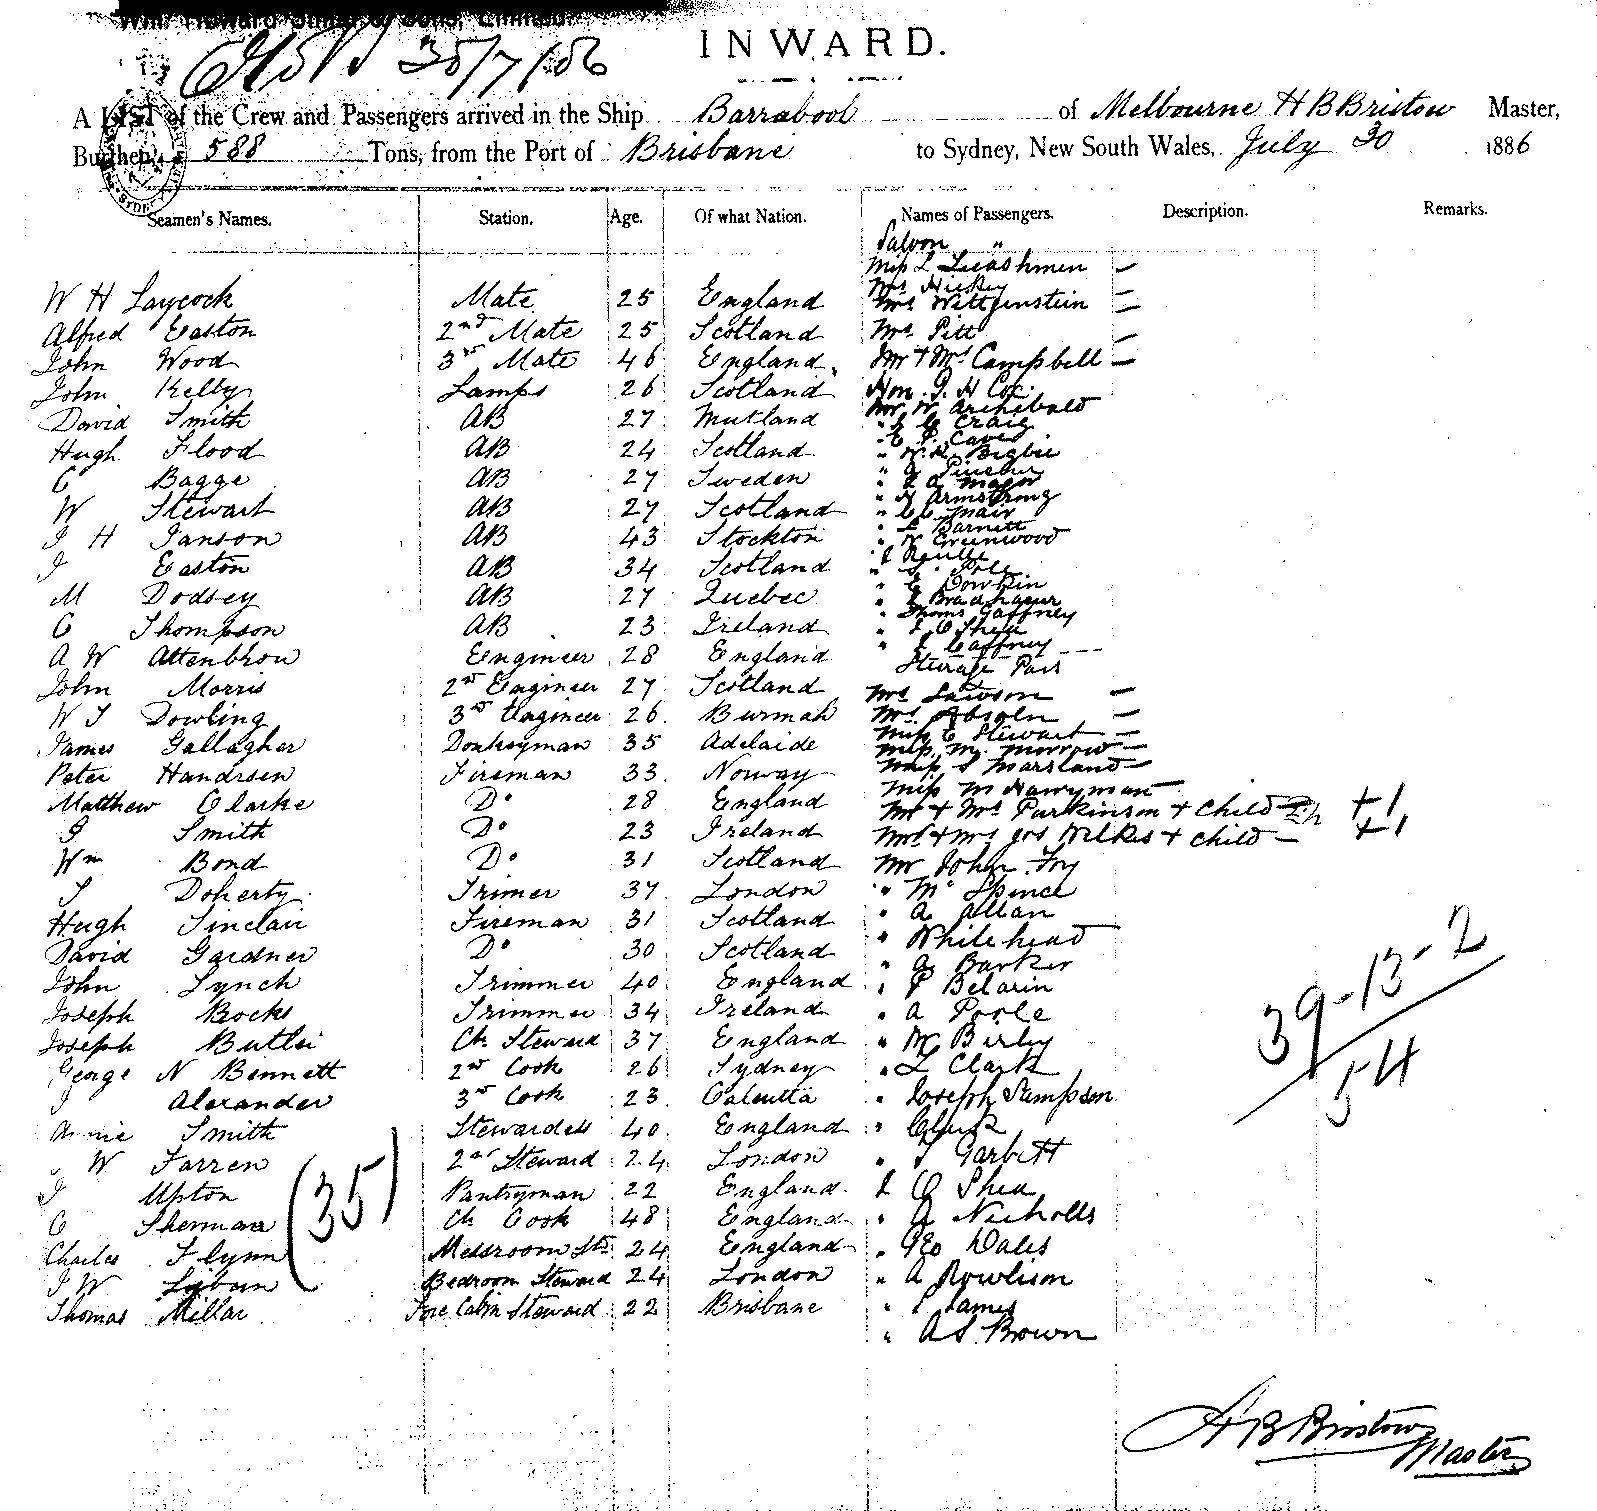 INWARD.
30/7/86
A LIST of the Crew and Passengers arrived in the Ship Barrabool of Melbourne H B Bristow Master,
Burthen 588 Tons, from the Port of Brisbane to Sydney, New South Wales, July 30 1886
Seamen's Names. Station. Age. Of what Nation. Names of Passengers. Description. Remarks.
Saloon "
Miss L Leashmen –
Mrs Hickey –
W H Laycock Mate 25 England Mrs Wittgenstein –
Alfred Easton 2nd Mate 25 Scotland Mrs Pitt –
John Wood 3rd Mate 46 England Mr + Mrs Campbell –
John Kelly Lamps 26 Scotland Hon. G. H Cox
David Smith AB 27 Mutland Mr W Archibald
" Craig
Hugh Flood AB 24 Scotland " Caves
" Bigbie
C Bagge AB 27 Sweden "
" Major
W Stewart AB 27 Scotland " H Armstrong
" Mair
J H Janson AB 43 Stockton " Barnett
" Greenwood
J Easton AB 34 Scotland
" Pole
M Dodsey AB 27 Quebec " Dowkin
"
C Thompson AB 23 Ireland " Thomas Gaffney
" O'Shea
A W Attenbrow Engineer 28 England " Gaffney
Steerage Pass
John Morris 2nd Engineer 27 Scotland Mrs Lawson –
W J Dowling 3rd Engineer 26 Burmah Mrs Absoln –
James Gallagher Donkeyman 35 Adelaide Miss C Stewart –
Miss M. Morrow –
Peter Handrsen Fireman 33 Norway Miss S Marsland –
Miss M Harryman
Matthew Clarke Do 28 England Mr + Mrs Parkinson + Child +1
J Smith Do 23 Ireland Mr + Mrs Jos Wilkes + child – +1
Wm Bond Do 31 Scotland Mr John Fry
T Doherty Trimer 37 London " Mc Spince
Hugh Sinclair Fireman 31 Scotland " A Allan
David Gardner Do 30 Scotland " Whitehead
John Lynch Trimmer 40 England " G Barker
" P Belarin
Joseph Brocks Trimmer 34 Ireland " A Poole
Joseph Butler Ch Steward 37 England " M Birby
George N Bennett 2nd Cook 26 Sydney " L Clark
J Alexander 3rd Cook 23 Calcutta " Joseph Sampson
Annie Smith Stewardess 40 England "
W Farren 2nd Steward 24 London " T Garbett
J Upton Pantryman 22 England " J O Shea
C Sherman Ch Cook 48 England " A Nicholls
Charles Flynn Messroom Std 24 England " Geo Dales
J W Bedroom Steward 24 London " A Rowlison
Thomas Millar Fore Cabin Steward 22 Brisbane " James
" A S. Brown
(35)
39-13-2
54
H B Bristow
Master